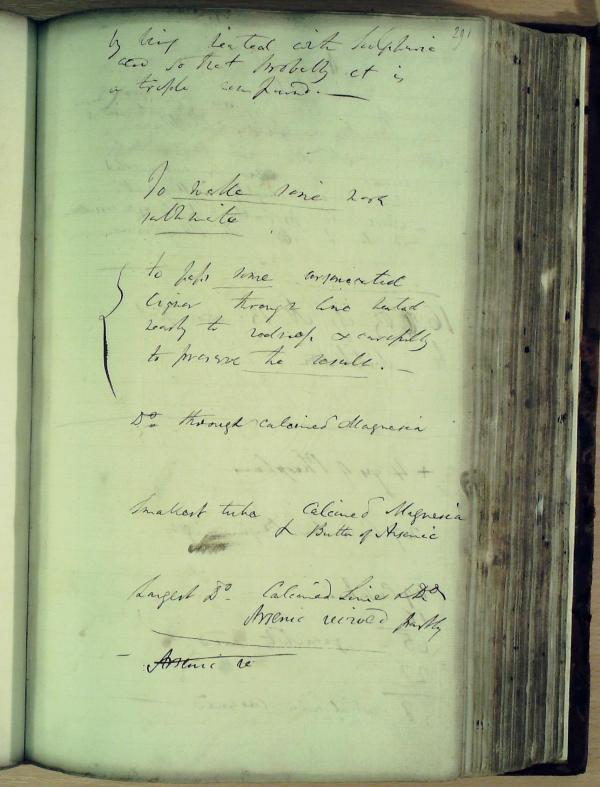 291
by being heated with Sulphuric
acid so that probably it is
a triple compound.
To make some more
sulphite
to pass some arsenicated
liquor through lime heated
nearly to redness & carefully
to preserve the result.
Do through calcined Magnesia
Smallest tube Calcined Magnesia
& Butter of Arsenic
Largest Do. Calcined Lime & Do
Arsenic revived partly
Arsenic re